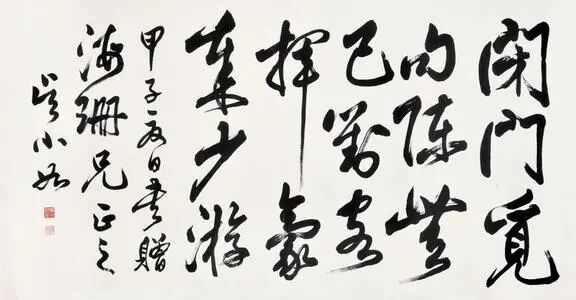 閉門覓
句陳無
己對客
揮毫
秦少游
甲子夏日書贈
海珊兄正之
吴小如